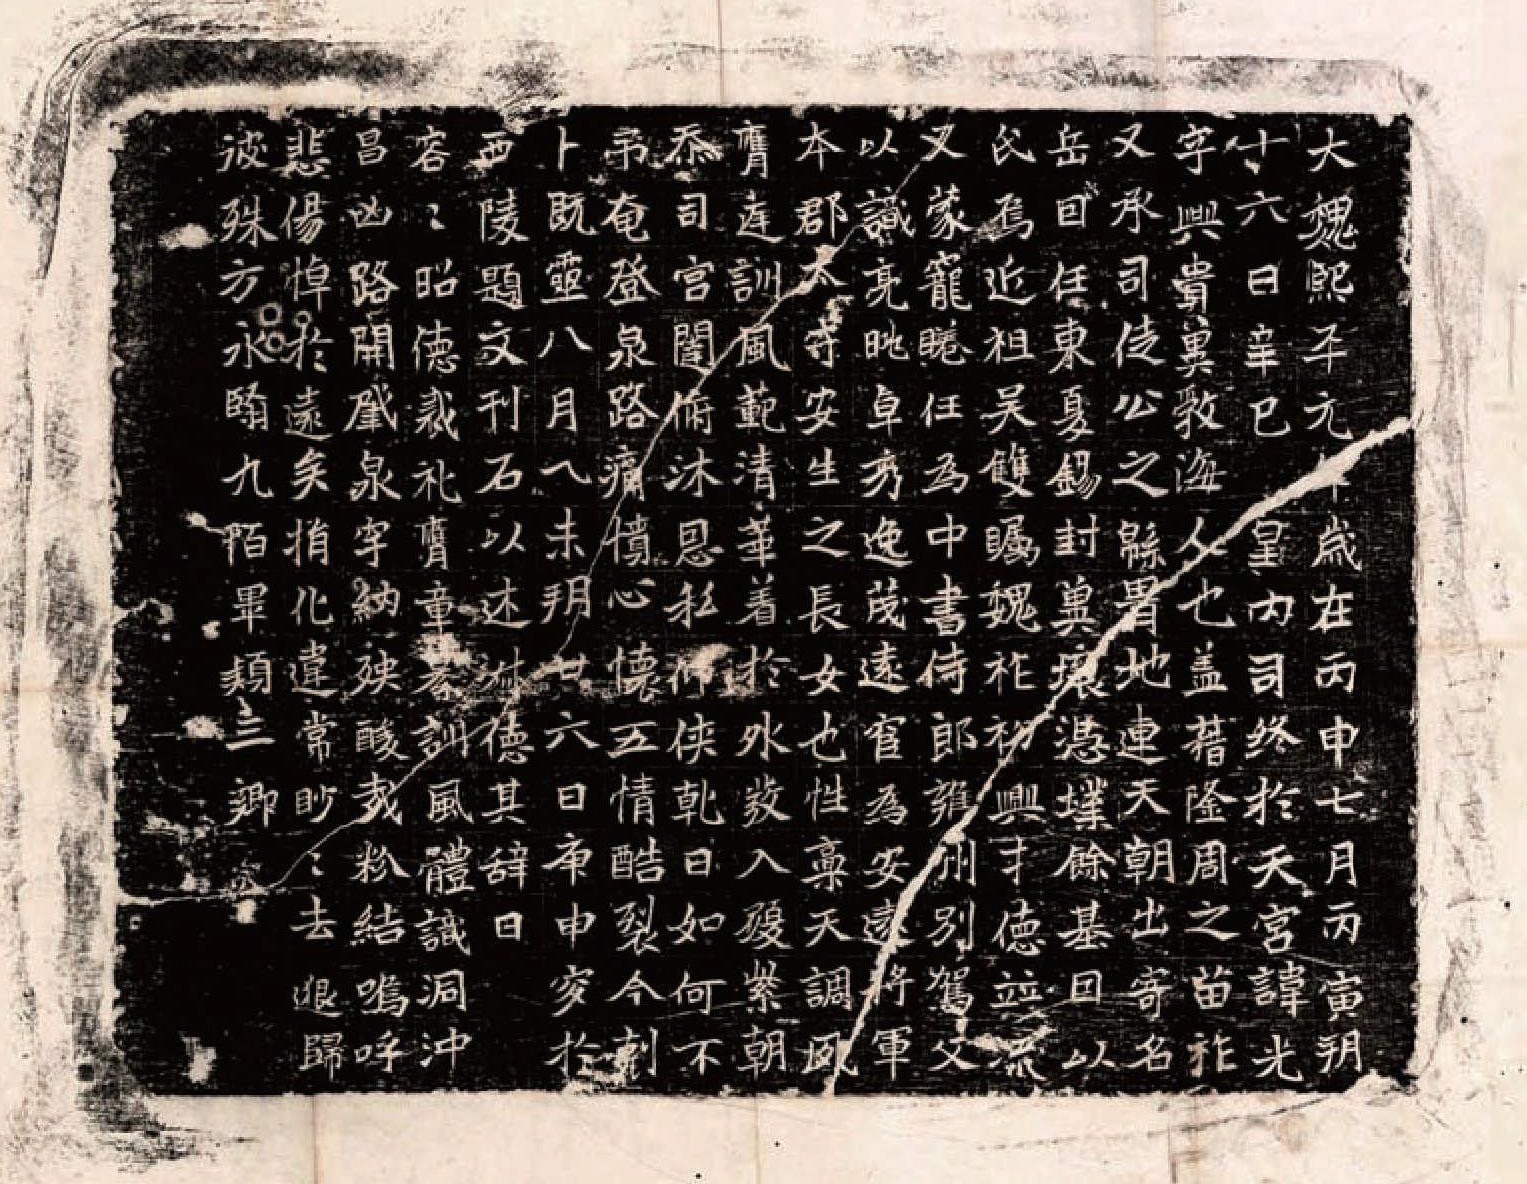 大魏熙平元年歲在丙申七月丙寅朔
十六日辛巳皇內司終於天宮諱光
字興貴冀敦海人也盖藉隆周之苗祚
又承司徒公之緜胄地連天朝出寄名
岳回任東夏錫封冀壤憑業餘基回以
氏焉近祖吴雙矚魏祚初興才德並流
又蒙寵睠任為中書侍郎雍州別駕父
以識亮晄卓秀逸茂遠官為安遠將軍
本郡太守安生之長女也性稟天調風
膺連訓風範清華着於外敡入殛紫朝
忝司宮闈俯沐恩私何侠軋日如何不
弔奄登泉路痛憤心懷五情酷裂今刻
卜既靈八月乀未朔廿六日庚申窆於
西陵題文刊石以述洲德其辞曰
容〻昭德裁礼膺章参訓風體識洞沖
昌凶路開啟泉穸納殃酸哉粉結嗚呼
悲傷悼於遠矣捎化違常眇〻去退歸
彼殊方永翳九陌畢類三鄉